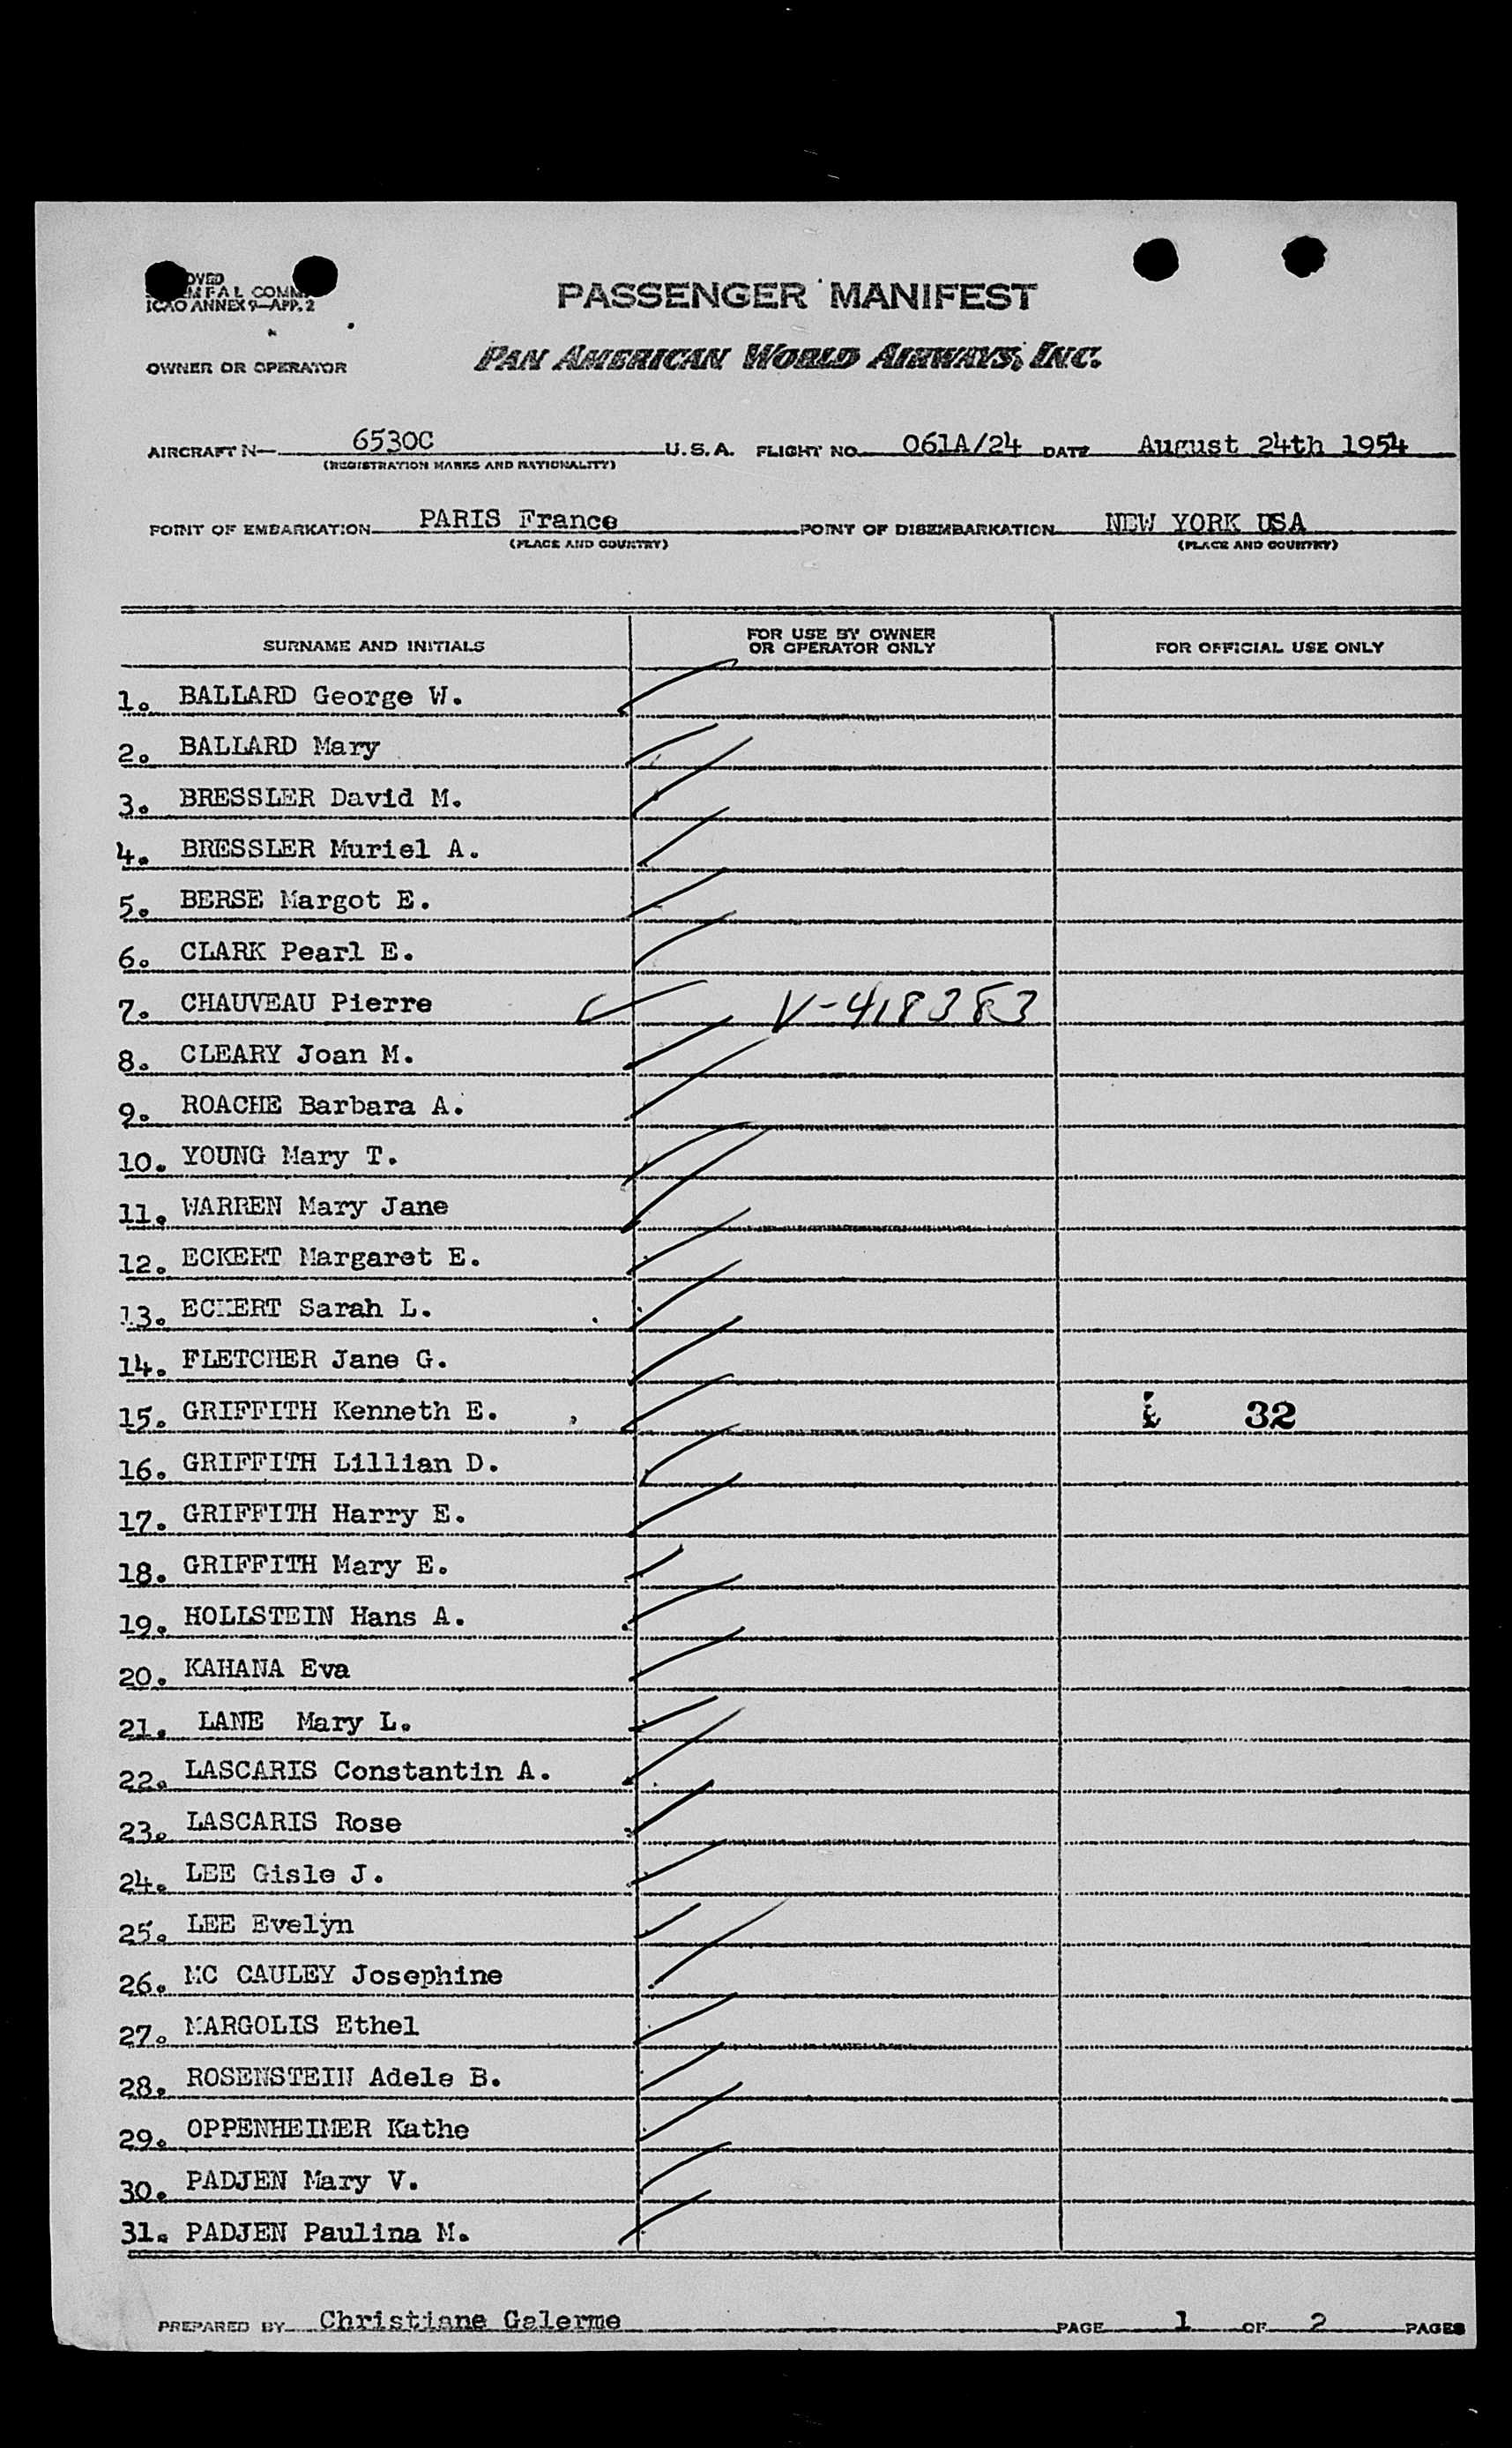 OVED
M F A L COMM
ICAO ANNEX 9—APP. 2
PASSENGER MANIFEST
OWNER OR OPERATOR PAN AMERICAN WORLD AIRWAYS, INC.
AIRCRAFT N— 6530C U.S.A. FLIGHT NO. 061A/24 DATE August 24th 1954
(REGISTRATION MARKS AND NATIONALITY)
POINT OF EMBARKATION PARIS France POINT OF DISEMBARKATION NEW YORK USA
(PLACE AND COUNTRY) (PLACE AND COUNTRY)
SURNAME AND INITIALS FOR USE BY OWNER OR OPERATOR ONLY FOR OFFICIAL USE ONLY
1. BALLARD George W.
2. BALLARD Mary
3. BRESSLER David M.
4. BRESSLER Muriel A.
5. BERSE Margot E.
6. CLARK Pearl E.
7. CHAUVEAU Pierre V-418383
8. CLEARY Joan M.
9. ROACHE Barbara A.
10. YOUNG Mary T.
11. WARREN Mary Jane
12. ECKERT Margaret E.
13. ECKERT Sarah L.
14. FLETCHER Jane G.
15. GRIFFITH Kenneth E. 32
16. GRIFFITH Lillian D.
17. GRIFFITH Harry E.
18. GRIFFITH Mary E.
19. HOLLSTEIN Hans A.
20. KAHANA Eva
21. LANE Mary L.
22. LASCARIS Constantin A.
23. LASCARIS Rose
24. LEE Gisle J.
25. LEE Evelyn
26. MC CAULEY Josephine
27. MARGOLIS Ethel
28. ROSENSTEIN Adele B.
29. OPPENHEIMER Kathe
30. PADJEN Mary V.
31. PADJEN Paulina M.
PREPARED BY Christiane Galerme PAGE 1 OF 2 PAGES